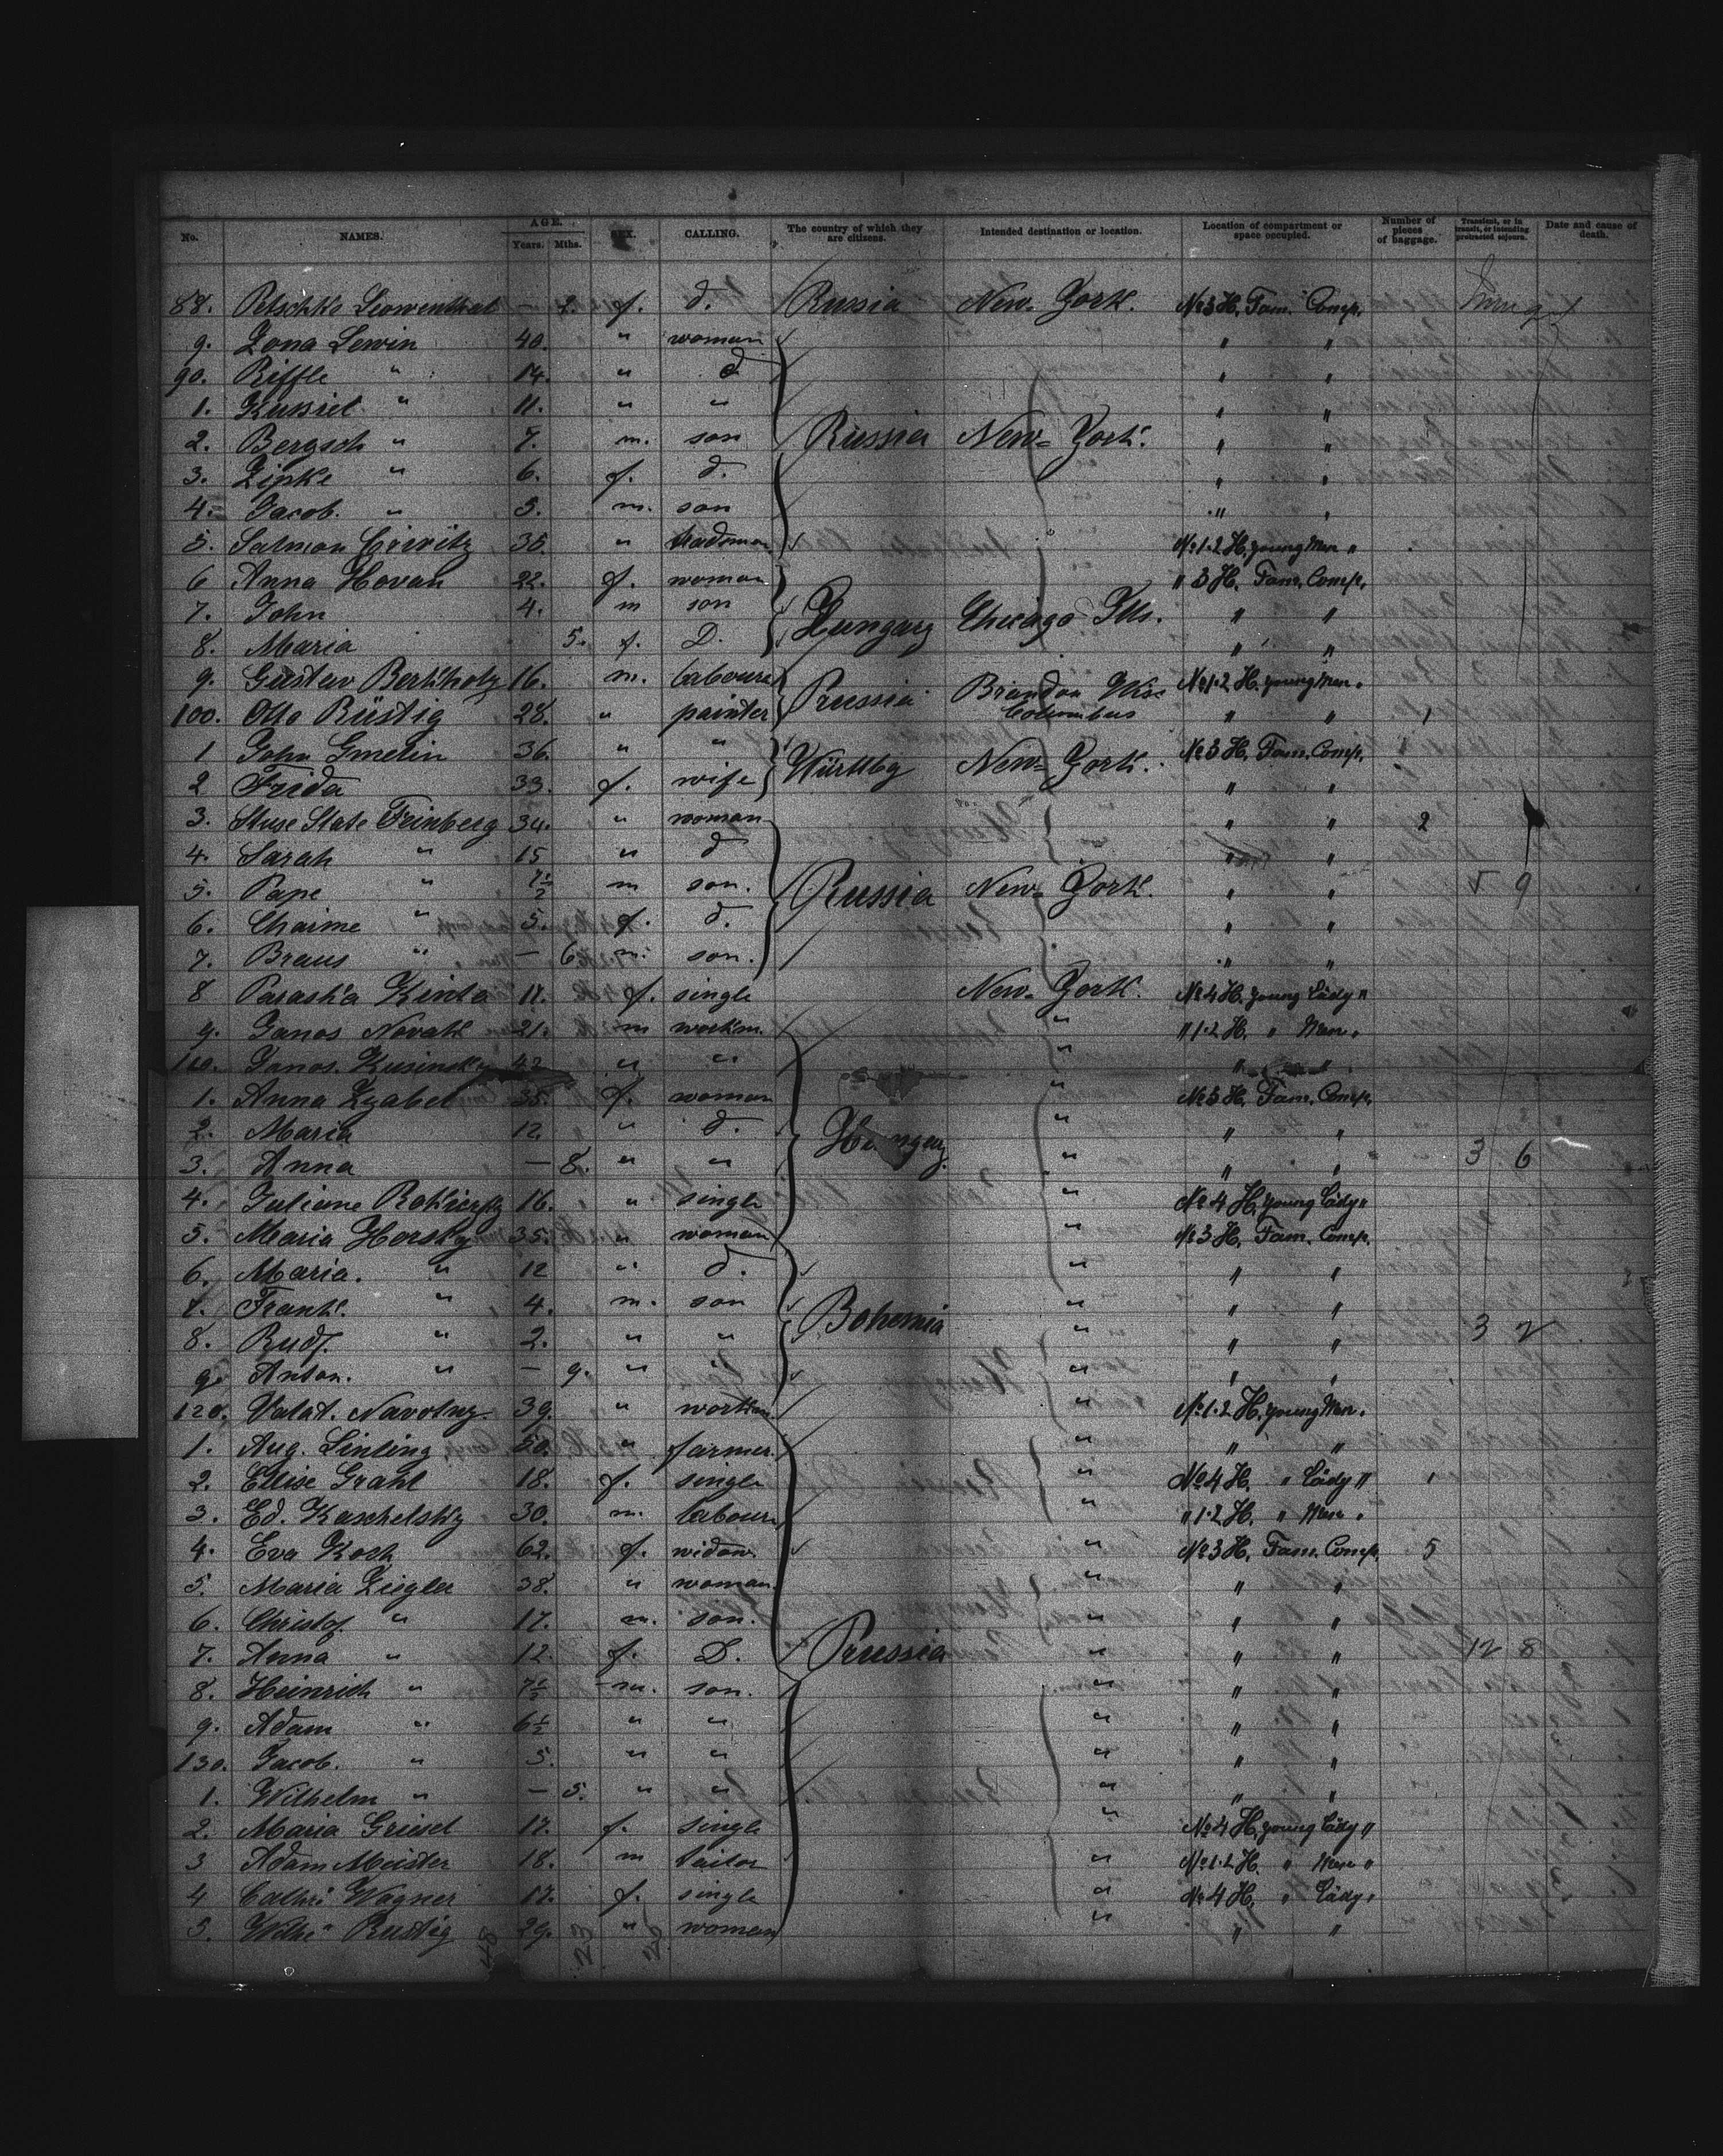 No. NAMES. AGE. Years. Mths. SEX. CALLING. The country of which they are citizens. Intended destination or location. Location of compartment or space occupied. Number of pieces of baggage. Transient, or in transit, or intending protracted sojourn. Date and cause of death.
88. Petschke Loewenthal — f. d. Russia New-York. No 3 H. Fam. Comp.
9. Zona Lewin 40. " woman " "
90. Riffle " 14. " d " "
1. Kussiel " 11. " " " "
2. Bergsch " 7. m. son Russia New-York. " "
3. Zipke " 6. f. d. " "
4. Jacob. " 5. m. son " "
5. Salmon Crivitz 35. " tradsman No 1.2 H. young Men "
6 Anna Hovan 22. f. woman " 3 H. Fam. Comp.
7. John 4. m son Hungary Chicago Ills. " "
8. Maria 5. f. D. " "
9. Gustav Berkholz 16. m. labourer Prussia Brandon Wisc No 1.2 H. young Men "
100. Otto Rüstig 28. " painter Columbus " " 1
1 John Gmelin 36. " " Württbg New-York. No 3 H. Fam. Comp.
2 Frida 33. f. wife " "
3. State Feinberg 34. " woman " " 2
4. Sarah " 15 " d " "
5. Pape " 7½ m son. Russia New-York. " " 5 9
6. Chaime " 5. f. d. " "
7. Braus " — 6 m. son. " "
8 Paraska Kinta 17. f. single New-York. No 4 H. young Lädy "
9. Janos Novak 21. m workm. " " 1.2 H. " Men "
110. Janos. Kusinsky 42 " " " " "
1. Anna Zgabel 35. f. woman " No 3 H. Fam. Comp.
2. Maria 12. " d. Hungary. " " "
3. Anna — 8. " " " " " 3 6
4. Juliane 16. " single " No 4 H. young Lädy "
5. Maria Horsky 35. " woman " No 3 H. Fam. Comp.
6. Maria. " 12 " d. " " "
7. Frank. " 4. m. son Bohemia " " "
8. Rudf. " 2. " " " " " 3 2
9. Anton. " — 9. " " " " "
120. Valat. Navotny 39. " workm. " No 1.2 H. young Men "
1. Aug. Linling 50. " farmer. " " "
2. Ellise Grahl 18. f. single " No 4 H. " Lädy " 1
3. Ed. Kaschelsky 30. m. labourer " " 1.2 H. " Men "
4. Eva Koch 62. f. widow " No 3 H. Fam. Comp. 5
5. Maria Ziegler 38. " woman. " " "
6. Christof " 17. m. son. " " "
7. Anna " 12. f. D. Prussia " " " 12 8
8. Heinrich " 7½ m. son. " " "
9. Adam " 6½ " " " " "
130. Jacob. " 5. " " " " "
1. Wilhelm " — 5. " " " " "
2. Maria Griesel 17. f. single " No 4 H. young Lädy "
3 Adam Meister 18. m tailor " No 1.2 H. " Men "
4 Cathri Wagner 17. f. single " No 4 H. " Lädy "
5. Wilhe Rustig 29. " woman " " "
48 23